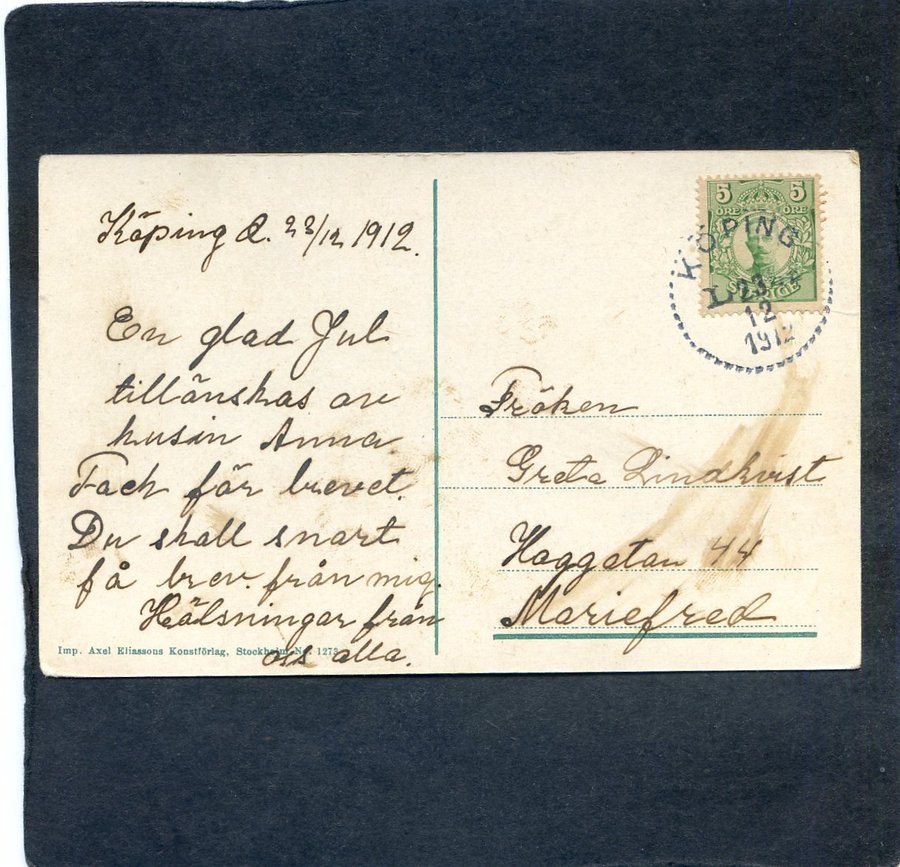 Köping d. 23/12 1912.
En glad Jul
tillönskas av
kusin Anna
Tack för brevet.
Du skall snart
få brev från mig.
Hälsningar från
oss alla.
Imp. Axel Eliassons Konstförlag, Stockholm No. 1273
5 5
ÖRE ÖRE
SVERIGE
KÖPING
23
12
1912
Fröken
Greta Lindkvist
Haggatan 44
Mariefred